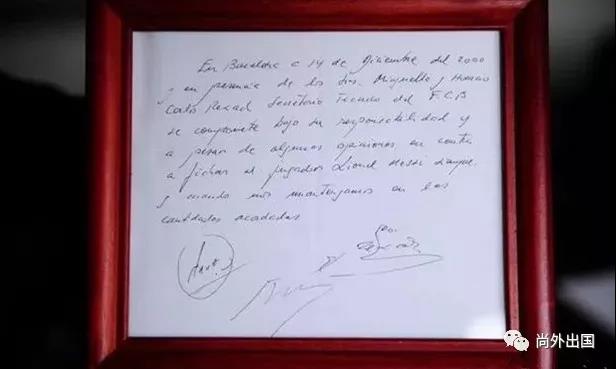 En Barcelona a 14 de Diciembre del 2000
y en presencia de los Sres. Minguella y Horacio
Carlos Rexach Secretario Técnico del F.C.B
se compromete bajo su responsabilidad y
a pesar de algunas opiniones en contra
a fichar al jugador Lionel Messi siempre
y cuando nos mantengamos en las
cantidades acordadas
尚外出国